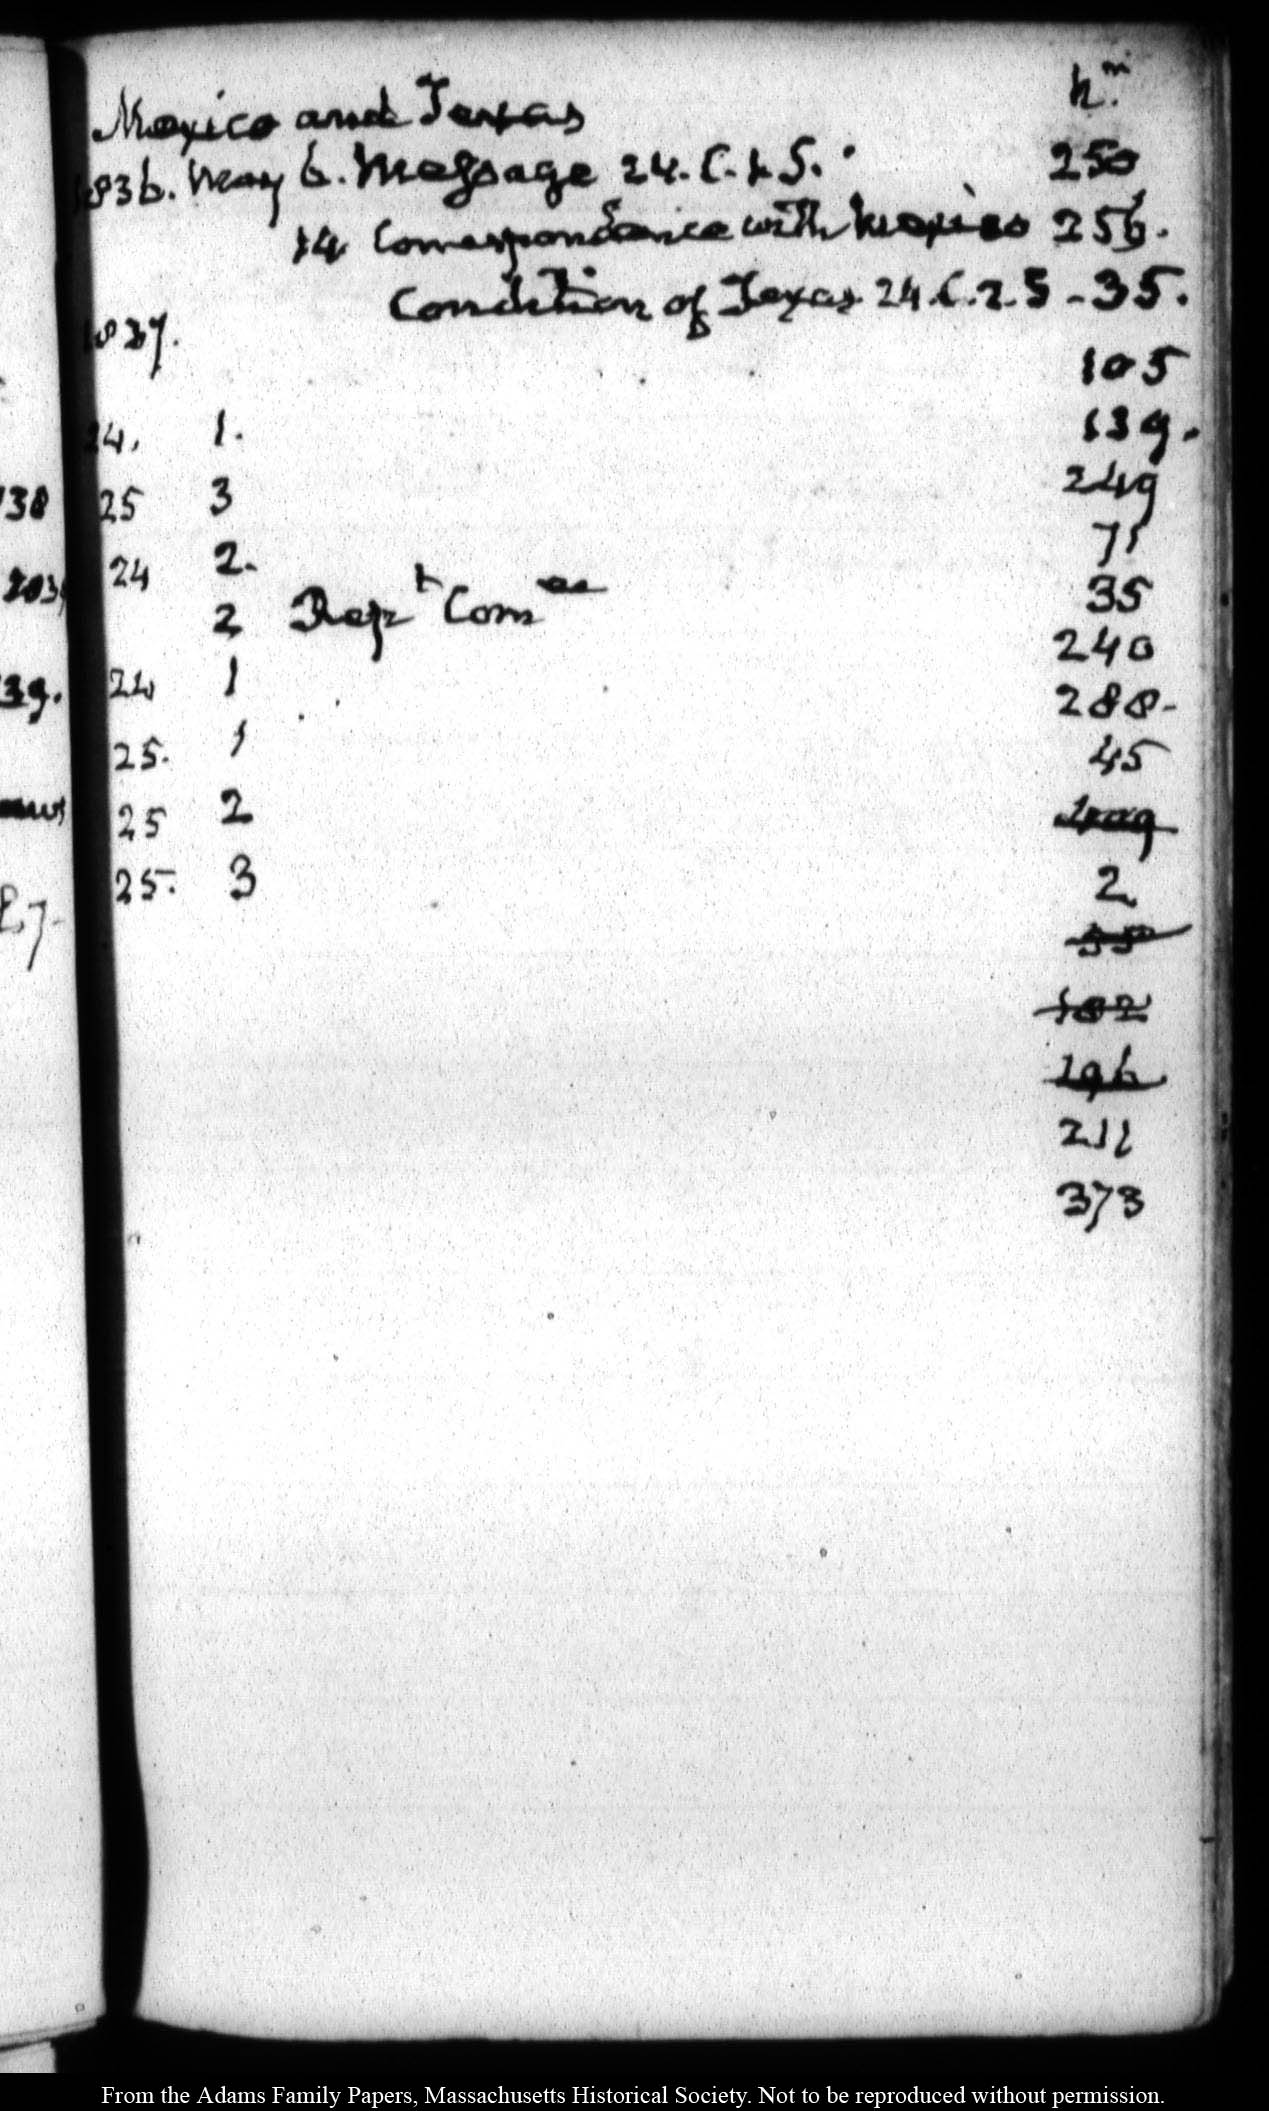 Mexico and Texas N.m
1836. May 6. Message 24. C. 1 S. 250
14 Correspondence with Mexico 256.
Condition of Texas 24. C. 2. S - 35.
1837.
105
24. 1. 139.
25 3 249
24 2. 71
2 Rept Comee 35
240
24 1
288.
25. 1 45
25 2
25. 3 2
55
182
196
211
373
38
39.
From the Adams Family Papers, Massachusetts Historical Society. Not to be reproduced without permission.